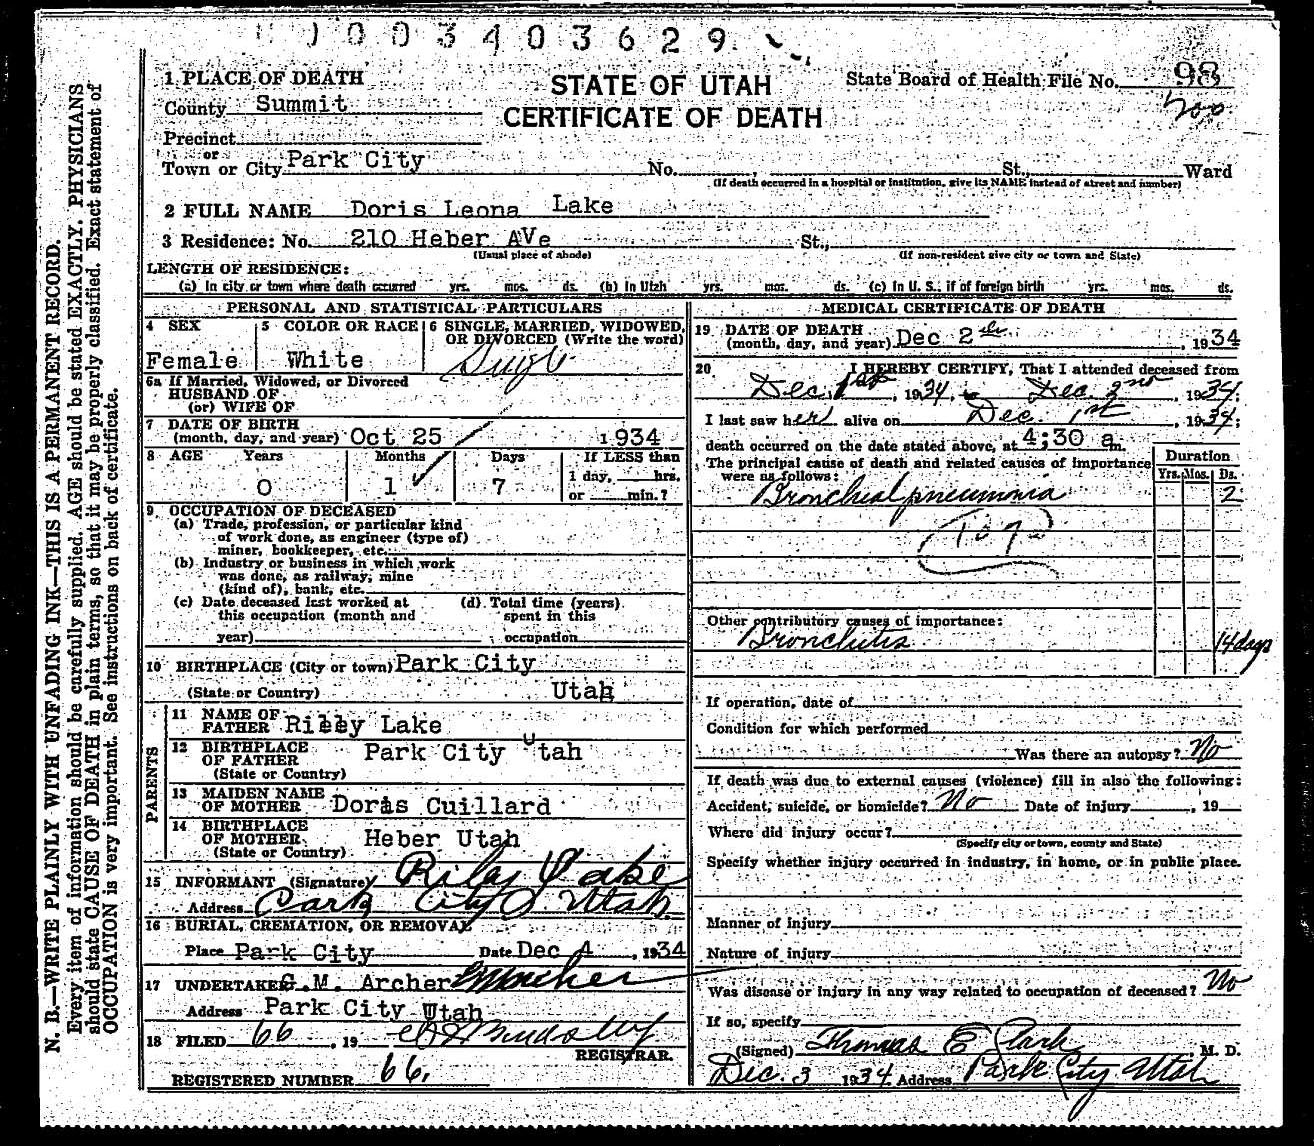 003403629
1 PLACE OF DEATH
STATE OF UTAH
CERTIFICATE OF DEATH
State Board of Health File No. 98
200
County Summit
Precinct
or
Town or City Park City No. , St., Ward
(If death occurred in a hospital or institution, give its NAME instead of street and number)
2 FULL NAME Doris Leona Lake
3 Residence: No. 210 Heber AVe St.,
(Usual place of abode) (If non-resident give city or town and State)
LENGTH OF RESIDENCE:
(a) In city or town where death occurred yrs. mos. ds. (b) In Utah yrs. mos. ds. (c) In U. S., if of foreign birth yrs. mos. ds.
PERSONAL AND STATISTICAL PARTICULARS
4 SEX
Female
5 COLOR OR RACE
White
6 SINGLE, MARRIED, WIDOWED,
OR DIVORCED (Write the word)
Single
6a If Married, Widowed, or Divorced
HUSBAND OF
(or) WIFE OF
7 DATE OF BIRTH
(month, day, and year) Oct 25 1934
8 AGE Years Months Days If LESS than
1 day, hrs.
0 1 7 or min.?
9. OCCUPATION OF DECEASED
(a) Trade, profession, or particular kind
of work done, as engineer (type of)
miner, bookkeeper, etc.
(b) Industry or business in which work
was done, as railway, mine
(kind of), bank, etc.
(c) Date deceased last worked at
this occupation (month and
year)
(d) Total time (years)
spent in this
occupation
10 BIRTHPLACE (City or town) Park City
(State or Country) Utah
PARENTS
11 NAME OF
FATHER Riley Lake
12 BIRTHPLACE
OF FATHER Park City Utah
(State or Country)
13 MAIDEN NAME
OF MOTHER Doris Cuillard
14 BIRTHPLACE
OF MOTHER Heber Utah
(State or Country)
15 INFORMANT (Signature) Riley Lake
Address Park City Utah
16 BURIAL, CREMATION, OR REMOVAL
Place Park City Date Dec 4 , 1934
17 UNDERTAKER G.M. Archer
Address Park City Utah
18 FILED 66 , 19
REGISTRAR.
REGISTERED NUMBER 66.
MEDICAL CERTIFICATE OF DEATH
19 DATE OF DEATH
(month, day, and year) Dec 2 , 1934
20 I HEREBY CERTIFY, That I attended deceased from
Dec. 1st , 1934, to Dec. 2nd , 1934;
I last saw her alive on Dec. 1st , 1934;
death occurred on the date stated above, at 4:30 a m.
The principal cause of death and related causes of importance
were as follows:
Duration
Yrs. Mos. Ds.
Bronchial pneumonia 2
107a
Other contributory causes of importance:
Bronchitis 14 days
If operation, date of
Condition for which performed
Was there an autopsy? No
If death was due to external causes (violence) fill in also the following:
Accident, suicide, or homicide? No Date of injury , 19
Where did injury occur?
(Specify city or town, county and State)
Specify whether injury occurred in industry, in home, or in public place.
Manner of injury
Nature of injury
Was disease or injury in any way related to occupation of deceased? No
If so, specify
(Signed) Thomas E Clark M. D.
Dec. 3 1934 Address Park City Utah
N. B.—WRITE PLAINLY WITH UNFADING INK—THIS IS A PERMANENT RECORD.
Every item of information should be carefully supplied. AGE should be stated EXACTLY. PHYSICIANS
should state CAUSE OF DEATH in plain terms, so that it may be properly classified. Exact statement of
OCCUPATION is very important. See instructions on back of certificate.